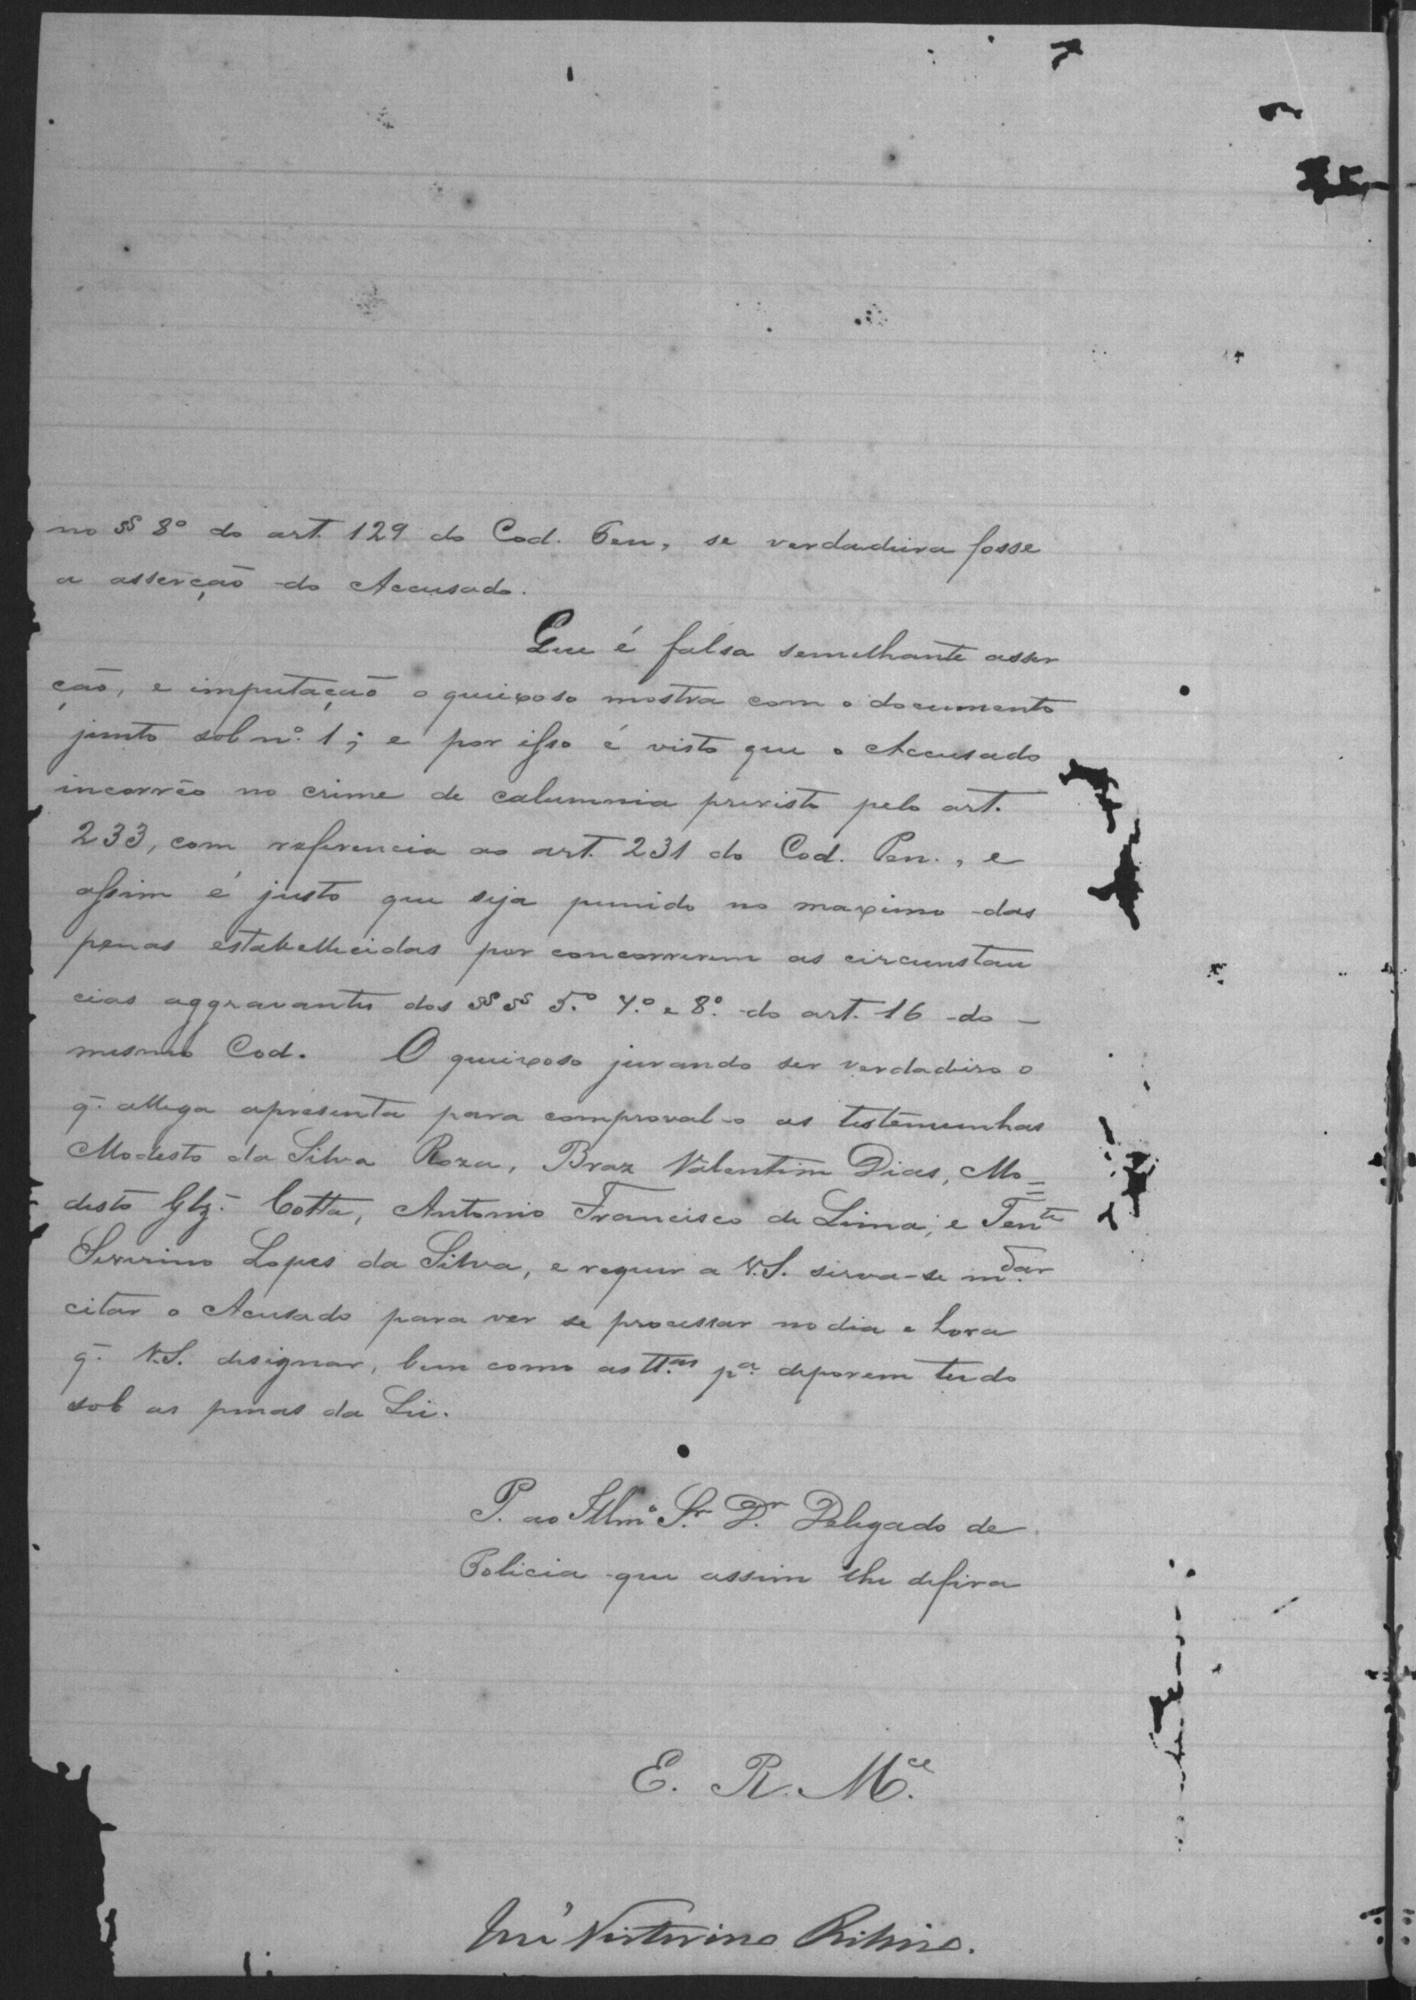 no §§ 8º do art. 129 do Cod. Pen, se verdadeira fosse
a asserção do Accusado.
Que é falsa semelhante asser
ção, e imputação o queixoso mostra com o documento
junto sob nº. 1; e por isso é visto que o Accusado
incorrêo no crime de calumnia previsto pelo art.
233, com referencia ao art. 231 do Cod. Pen., e
assim é justo que seja punido no maximo das
penas estabellecidas por concorrerem as circunstan
cias aggravantes dos §§ 5.º 4.º e 8º. do art. 16 do –
mesmo Cod. O queixoso jurando ser verdadeiro o
q. allega apresenta para comproval-o as testemunhas
Modesto da Silva Roza, Braz Valentim Dias, Mo=
desto Glz. Cotta, Antonio Francisco de Lima, e Tente
Severino Lopes da Silva, e requer a V.S. sirva-se mdar
citar o Acusado para ver se processar no dia e hora
q. V.S. designar, bem como as tt.as pa. deporem tudo
sob as penas da Lei.
P. ao Illmº Sr. Dr. Delegado de
Policia que assim lhe defira
E. R. Mce.
José Victorino Ribeiro.